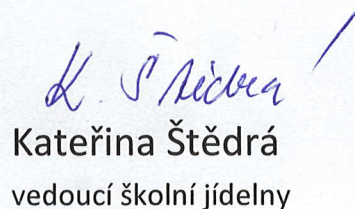 K. Štědrá
Kateřina Štědrá
vedoucí školní jídelny